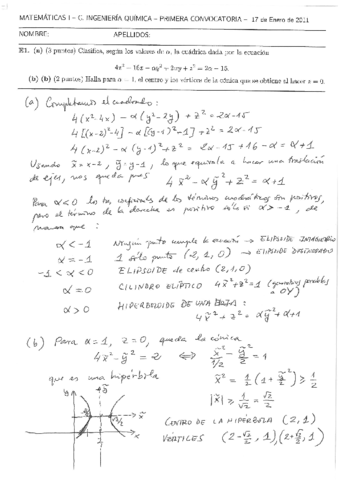 MATEMÁTICAS I – G. INGENIERÍA QUÍMICA – PRIMERA CONVOCATORIA – 17 de Enero de 2011
NOMBRE: APELLIDOS:
E1. (a) (3 puntos) Clasifica, según los valores de α, la cuádrica dada por la ecuación
4x² − 16x − αy² + 2αy + z² = 2α − 15.
(b) (2 puntos) Halla para α = 1, el centro y los vértices de la cónica que se obtiene al hacer z = 0.
(a) Completamos el cuadrado:
4(x²-4x) - α(y²-2y) + z² = 2α-15
4[(x-2)²-4] - α[(y-1)²-1] + z² = 2α-15
4(x-2)² - α(y-1)² + z² = 2α-15+16-α = α+1
Usando x̄ = x-2, ȳ = y-1, lo que equivale a hacer una traslación
de ejes, nos queda pues 4x̄² - αȳ² + z² = α+1
Para α<0 los tres coeficientes de los términos cuadráticos son positivos,
pero el término de la derecha es positivo sólo si α>-1, de
manera que:
α < -1 Ningún punto cumple la ecuación → ELIPSOIDE IMAGINARIO
α = -1 1 sólo punto (2,1,0) → ELIPSOIDE DEGENERADO
-1 < α < 0 ELIPSOIDE de centro (2,1,0)
α = 0 CILINDRO ELÍPTICO 4x̄²+z²=1 (generatrices paralelas a OY)
α > 0 HIPERBOLOIDE DE UNA HOJA:
4x̄² + z² = αȳ² + α+1
(b) Para α=1, z=0, queda la cónica
4x̄² - ȳ² = 2 ⟺ x̄²/(1/2) - ȳ²/2 = 1
que es una hipérbola
x̄² = 1/2 (1 + ȳ²/2) ≥ 1/2
|x̄| ≥ 1/√2 = √2/2
CENTRO DE LA HIPÉRBOLA (2,1)
VÉRTICES (2-√2/2, 1), (2+√2/2, 1)